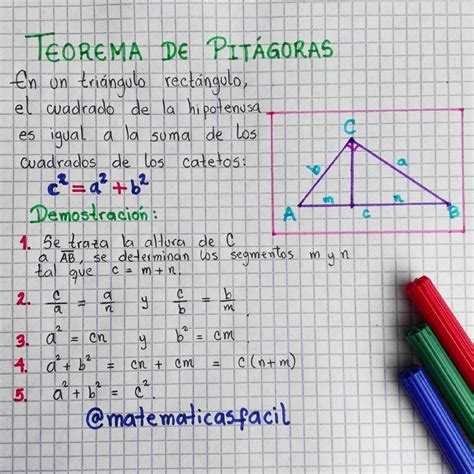 TEOREMA DE PITÁGORAS
En un triángulo rectángulo,
el cuadrado de la hipotenusa
es igual a la suma de los
cuadrados de los catetos:
c² = a² + b²
Demostración:
C
b
a
A
m
n
c
B
1. Se traza la altura de C
a A̅B̅, se determinan los segmentos m y n
tal que c = m + n.
2. c/a = a/n y c/b = b/m
3. a² = cn y b² = cm
4. a² + b² = cn + cm = c(n+m)
5. a² + b² = c².
@matematicasfacil